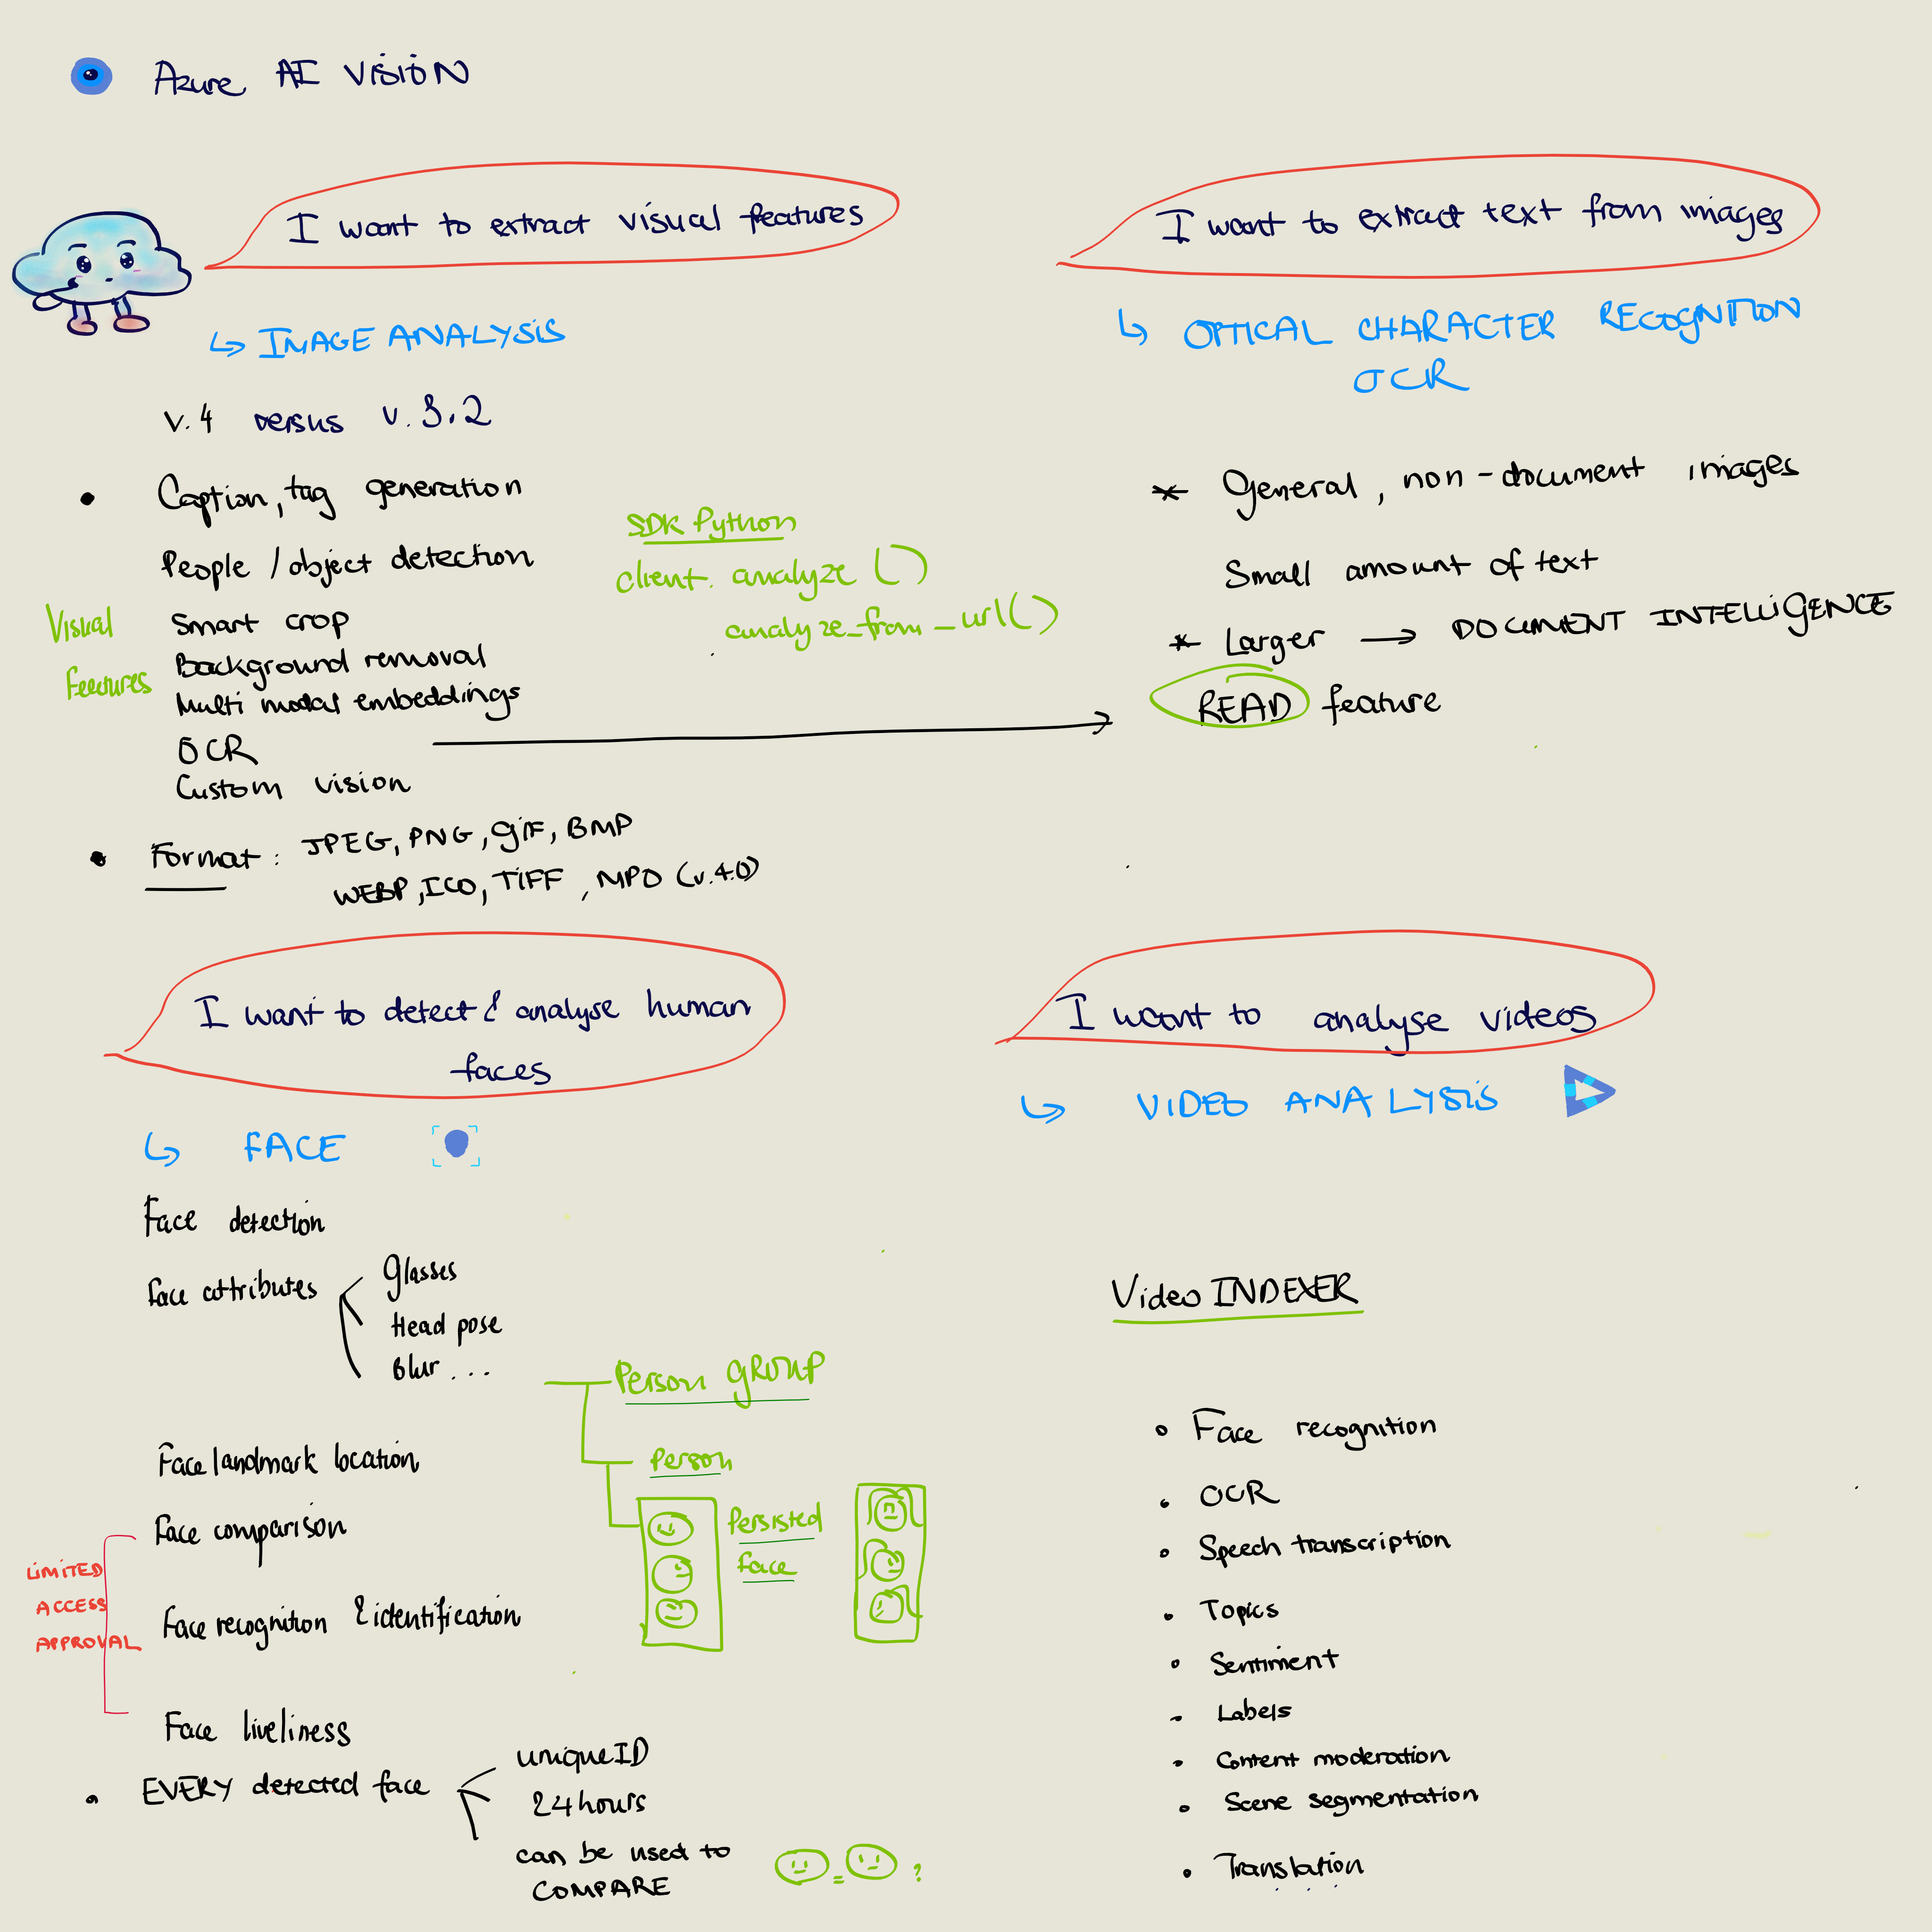 Azure AI Vision
I want to extract visual features
↳ IMAGE ANALYSIS
v.4 versus v.3.2
• Caption, tag generation
People / object detection
Smart crop
Background removal
Multi modal embeddings
OCR
Custom vision
Visual
Features
SDK Python
client. analyze ()
analyze_from_url()
• Format : JPEG, PNG, GIF, BMP
WEBP, ICO, TIFF, MPO (v.4.0)
I want to extract text from images
↳ OPTICAL CHARACTER RECOGNITION
OCR
* General, non-document images
Small amount of text
* Larger → DOCUMENT INTELLIGENCE
READ feature
I want to detect & analyse human
faces
↳ FACE
Face detection
Face attributes
Glasses
Head pose
Blur ...
Face landmark location
Face comparison
Face recognition & identification
Face liveliness
LIMITED
ACCESS
APPROVAL
Person GROUP
Person
Persisted
face
• EVERY detected face
uniqueID
24hours
can be used to
COMPARE
= ?
I want to analyse videos
↳ VIDEO ANALYSIS
Video INDEXER
• Face recognition
• OCR
• Speech transcription
• Topics
• Sentiment
• Labels
• Content moderation
• Scene segmentation
• Translation